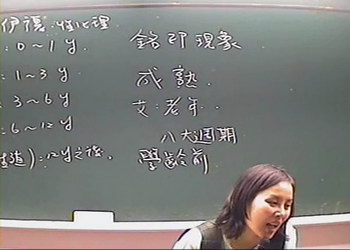 伊
性心理
: 0~1 y
銘印現象
: 1~3 y
成熟
: 3~6 y
艾:老年
: 6~12 y
八大週期
): 12y之後.
學齡前